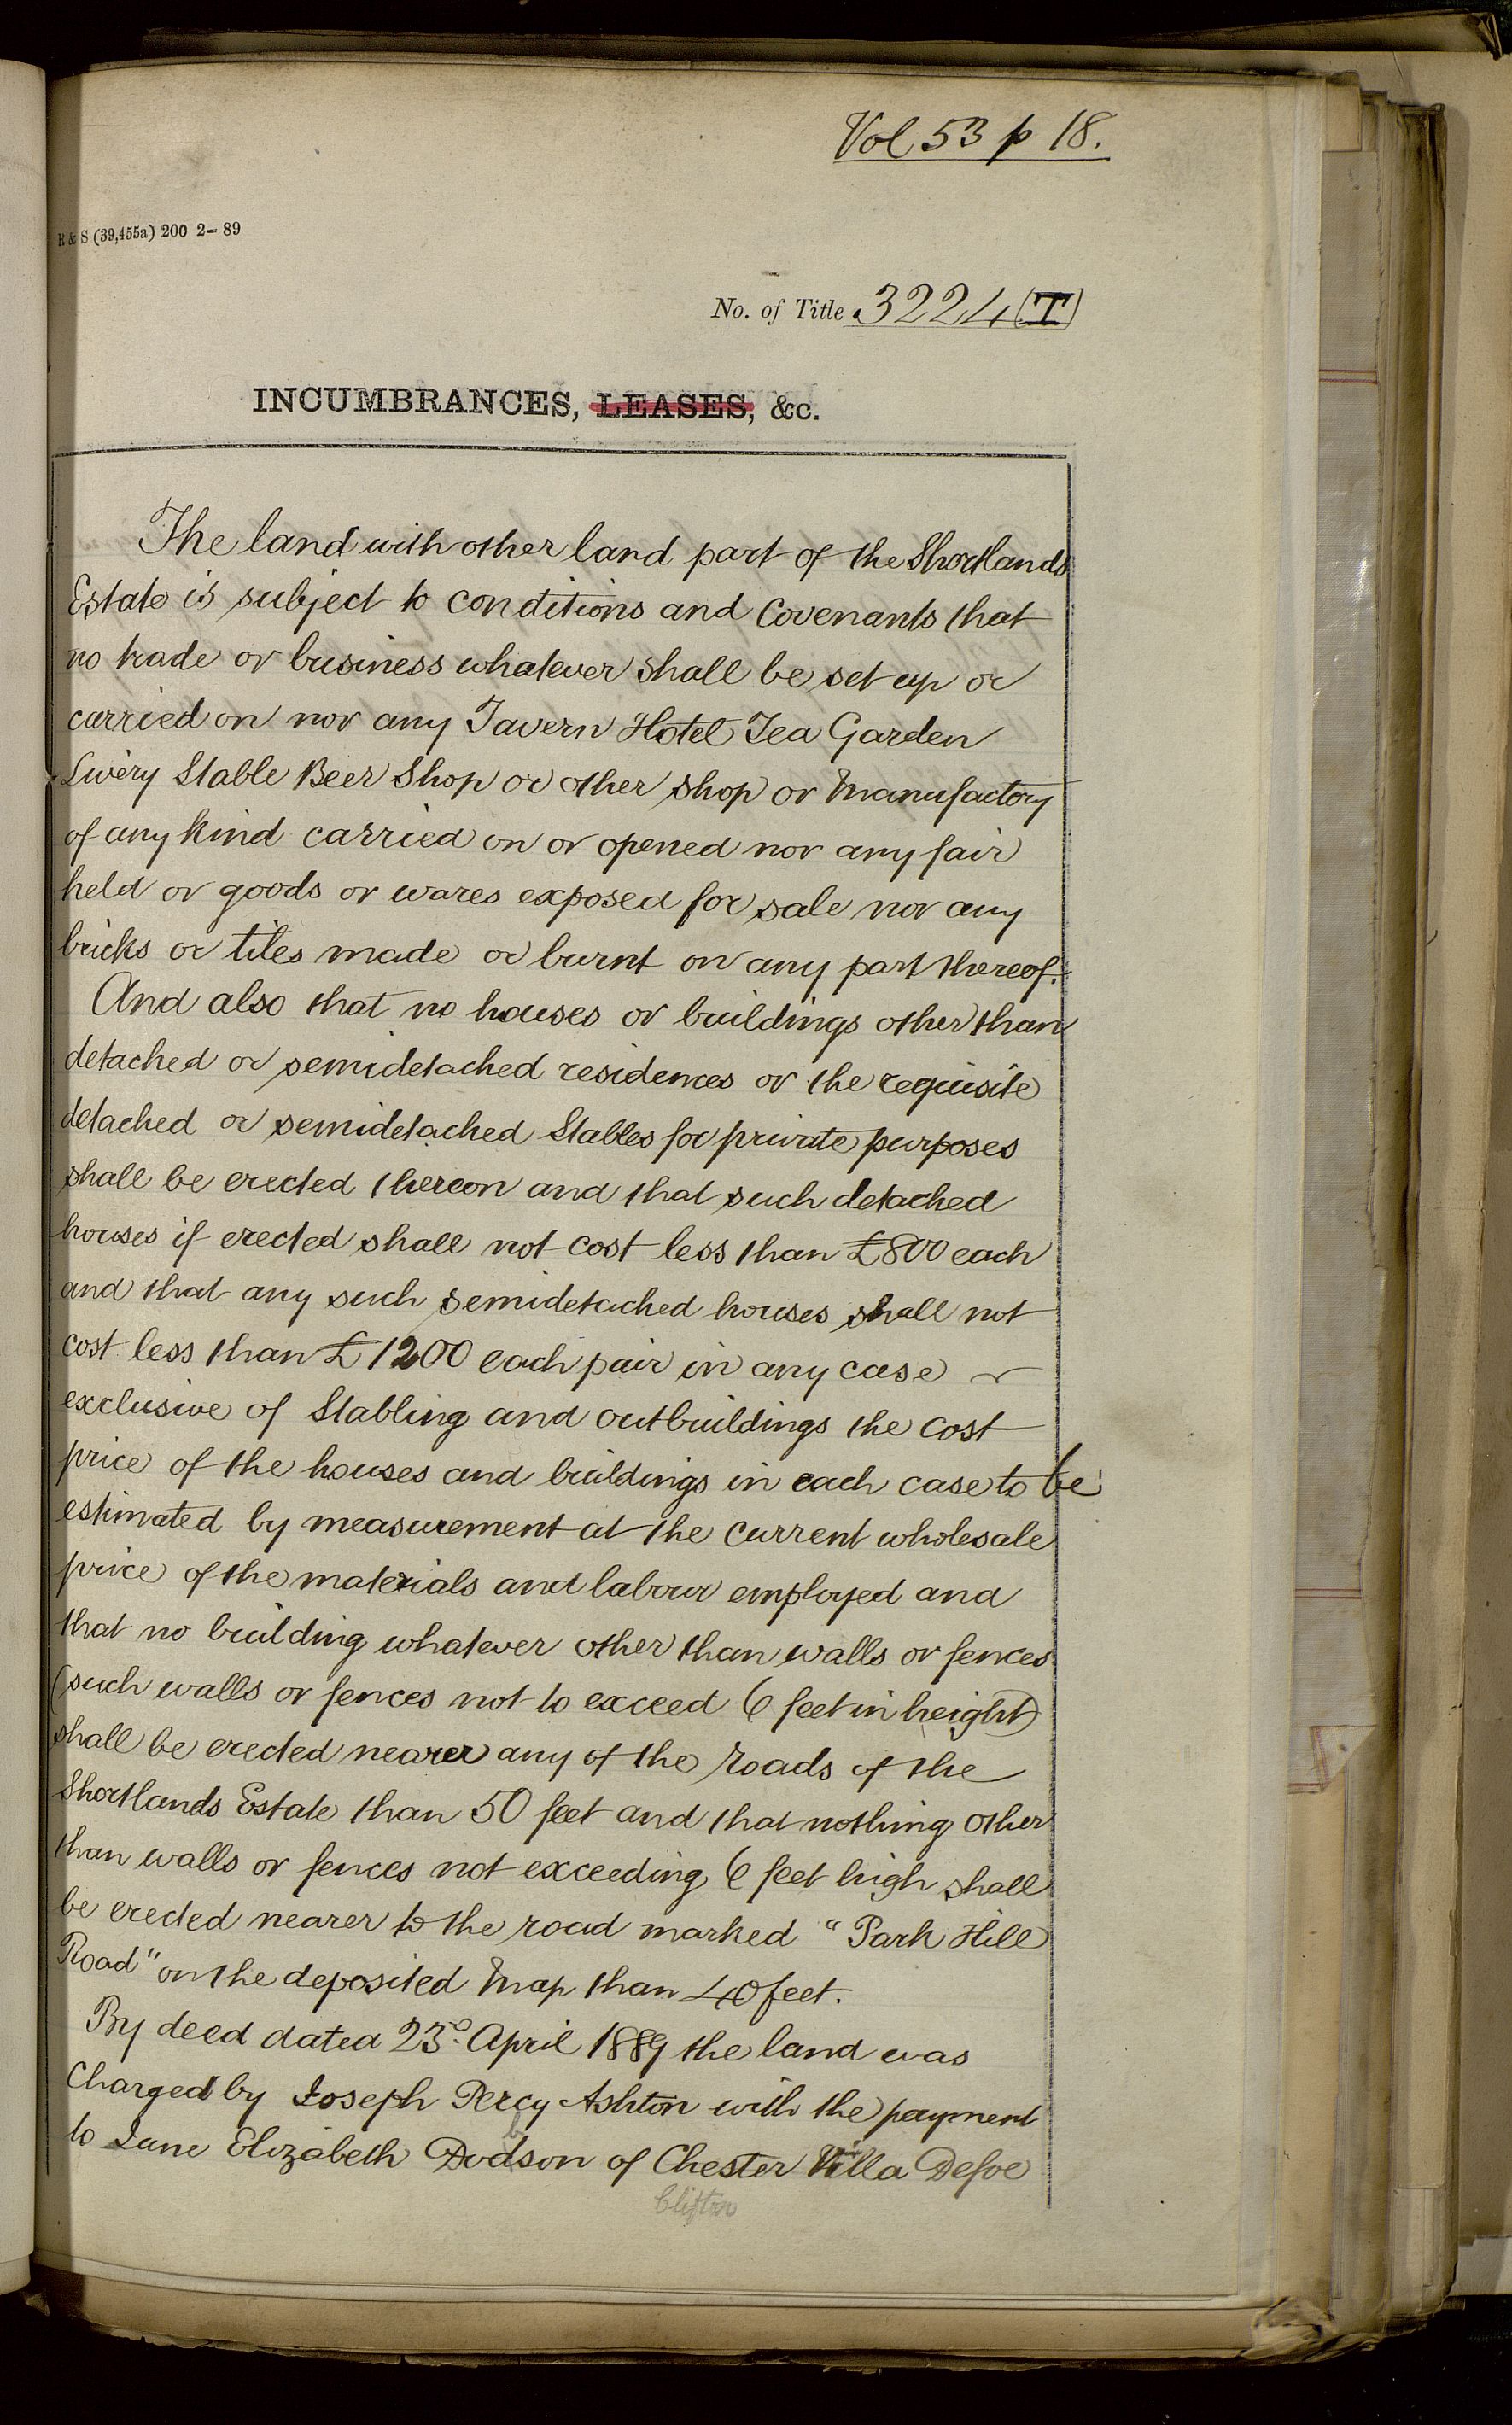 Vol 53 p 18.
R & S (39,455a) 200 2-89
No. of Title 3224 (T)
INCUMBRANCES, LEASES, &c.
The land with other land part of the Shortlands
Estate is subject to conditions and Covenants that
no trade or business whatever shall be set up or
carried on nor any Tavern Hotel Tea Garden
Livery Stable Beer Shop or other shop or Manufactory
of any kind carried on or opened nor any fair
held or goods or wares exposed for sale nor any
bricks or tiles made or burnt on any part thereof.
And also that no houses or buildings other than
detached or semidetached residences or the requisite
detached or semidetached Stables for private purposes
shall be erected thereon and that such detached
houses if erected shall not cost less than £800 each
and that any such semidetached houses shall not
cost less than £1200 each pair in any case
exclusive of Stabling and outbuildings the cost
price of the houses and buildings in each case to be
estimated by measurement at the current wholesale
price of the materials and labour employed and
that no building whatever other than walls or fences
(such walls or fences not to exceed 6 feet in height)
shall be erected nearer any of the roads of the
Shortlands Estate than 50 feet and that nothing other
than walls or fences not exceeding 6 feet high shall
be erected nearer to the road marked "Park Hill
Road" on the deposited Map than 40 feet.
By deed dated 23d. April 1889 the land was
Charged by Joseph Percy Ashton with the payment
to Jane Elizabeth Dodson of Chester Villa Defoe
Clifton